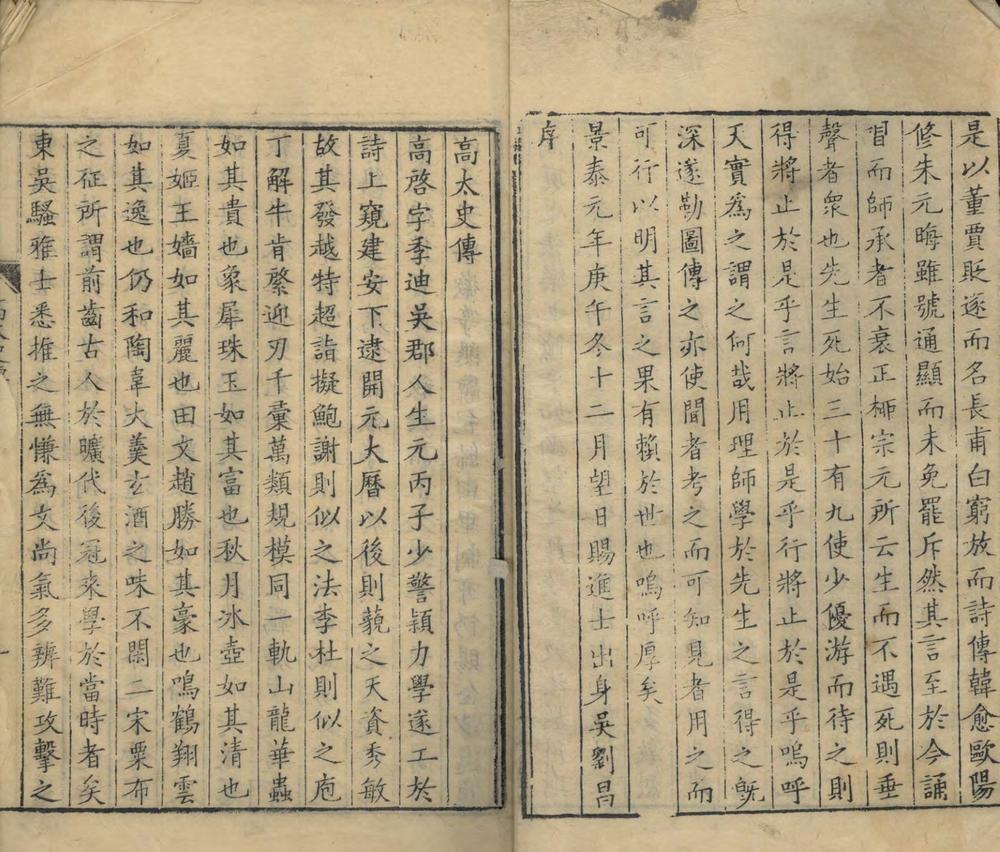 是以董賈貶遂而名長甫白窮放而詩傳韓愈歐陽
修朱元晦雖號通顯而未免罷斥然其言至於今誦
習而師承者不衰正栁宗元所云生而不遇死則垂
聲者衆也先生死始三十有九使少優游而待之則
得將止於是乎言將止於是乎行將止於是乎嗚呼
天實為之謂之何哉用理師學於先生之言得之旣
深遂勒圖傳之亦使聞者考之而可知見者用之而
可行以明其言之果有賴於世也嗚呼厚矣
景泰元年庚午冬十二月望日賜進士出身吳劉昌
序
高太史傳
高啓字季迪吳郡人生元丙子少警穎力學遂工於
詩上窺建安下逮開元大曆以後則藐之天資秀敏
故其發越特超詣擬鮑謝則似之法李杜則似之庖
丁解牛肯綮迎刃千彚萬類規模同一軌山龍華蟲
如其貴也象犀珠玉如其富也秋月冰壺如其清也
夏姬王嬙如其麗也田文趙勝如其豪也鳴鶴翔雲
如其逸也仍和陶韋大羹玄酒之味不閑二宋粟布
之征所謂前齒古人於曠代後冠來學於當時者矣
東吳騷雅士悉推之無慊為文尚氣多辨難攻擊之